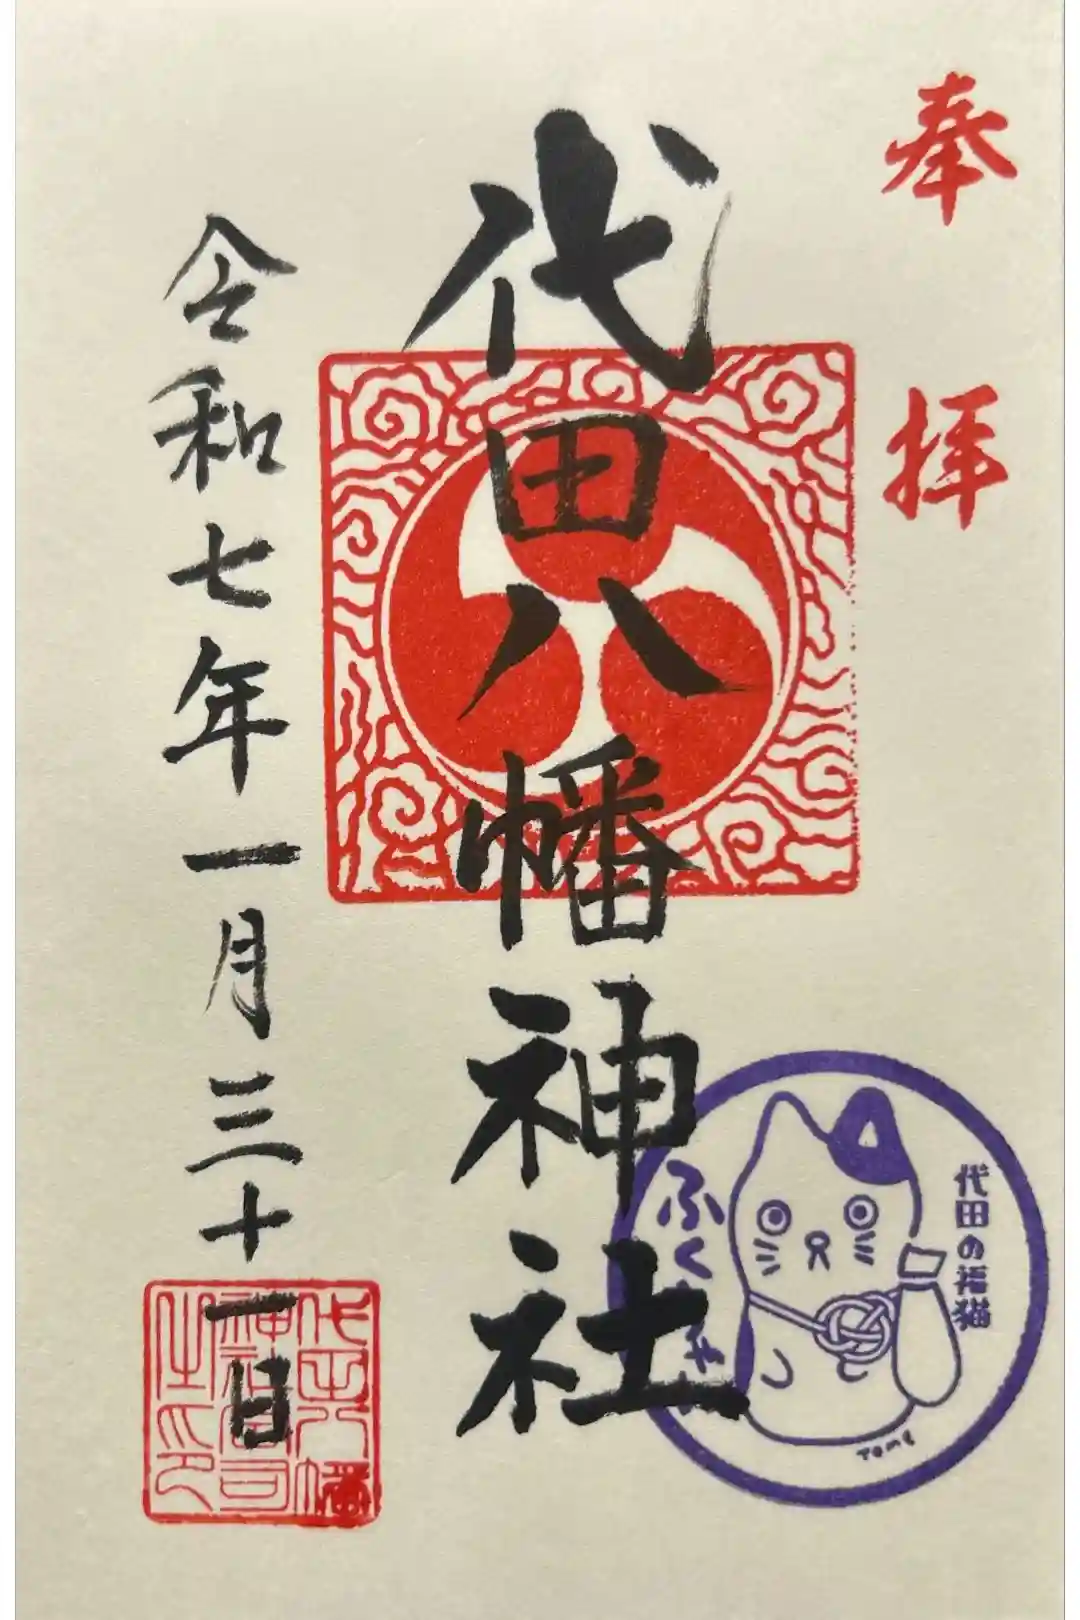 奉拝
代田八幡神社
令和七年一月三十一日
代田八幡
神社宮司
之印
代田の福猫
ふく
TOME